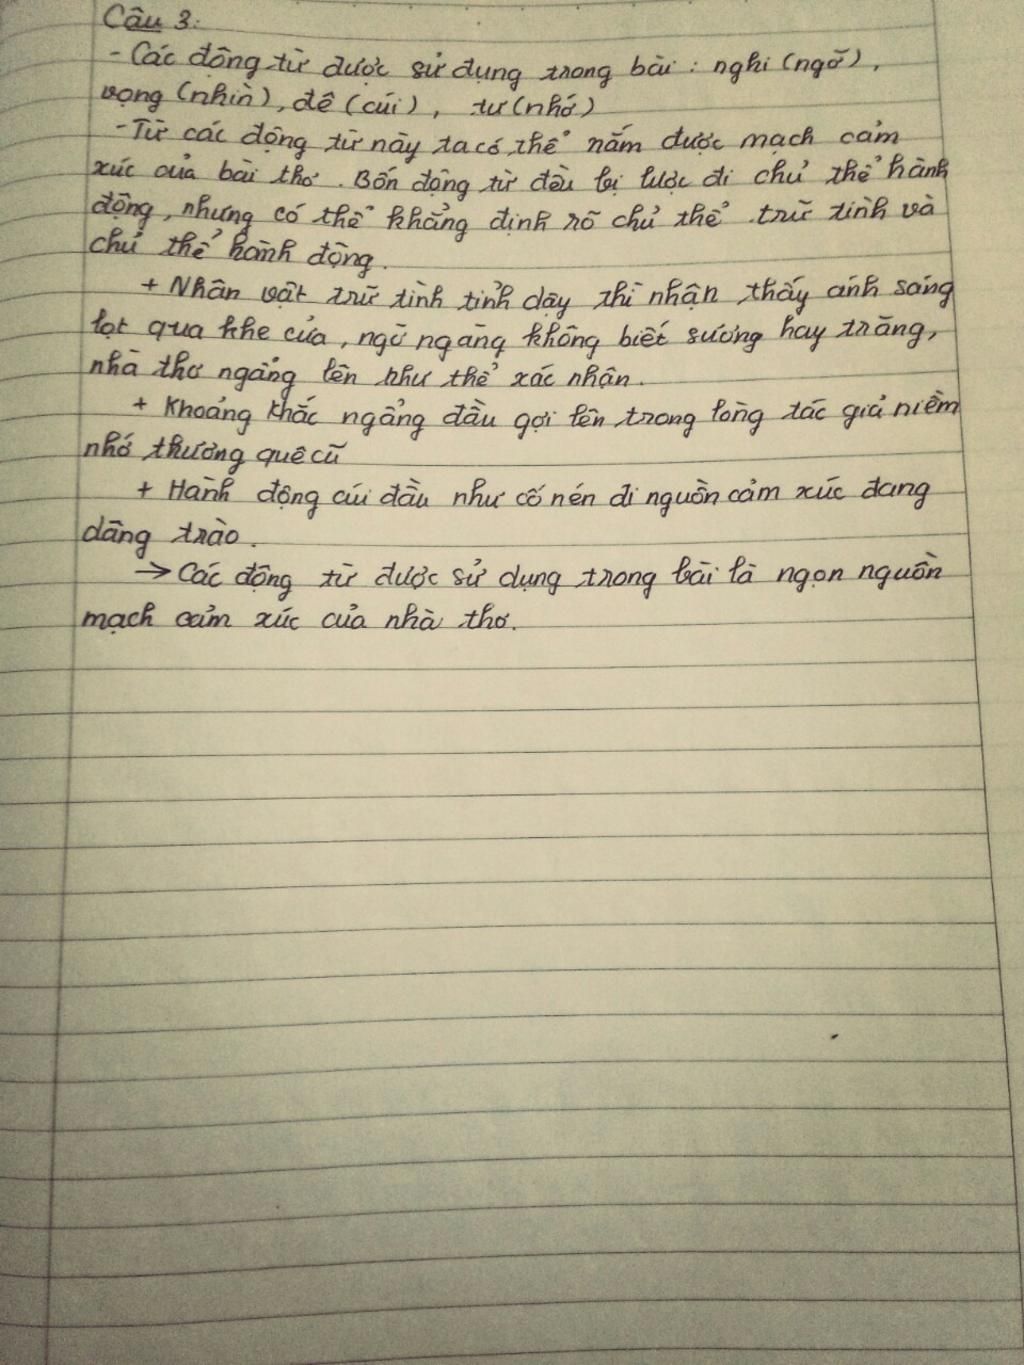 Câu 3:
- Các động từ được sử dụng trong bài : nghi (ngỡ),
vọng (nhìn), đê (cúi), tư (nhớ)
- Từ các động từ này ta có thể nắm được mạch cảm
xúc của bài thơ. Bốn động từ đều bị lược đi chủ thể hành
động, nhưng có thể khẳng định rõ chủ thể trữ tình và
chủ thể hành động.
+ Nhân vật trữ tình tỉnh dậy thì nhận thấy ánh sáng
lọt qua khe cửa, ngỡ ngàng không biết sương hay trăng,
nhà thơ ngẩng lên như thể xác nhận.
+ Khoảng khắc ngẩng đầu gợi lên trong lòng tác giả niềm
nhớ thương quê cũ
+ Hành động cúi đầu như cố nén đi nguồn cảm xúc đang
dâng trào.
→ Các động từ được sử dụng trong bài là ngọn nguồn
mạch cảm xúc của nhà thơ.